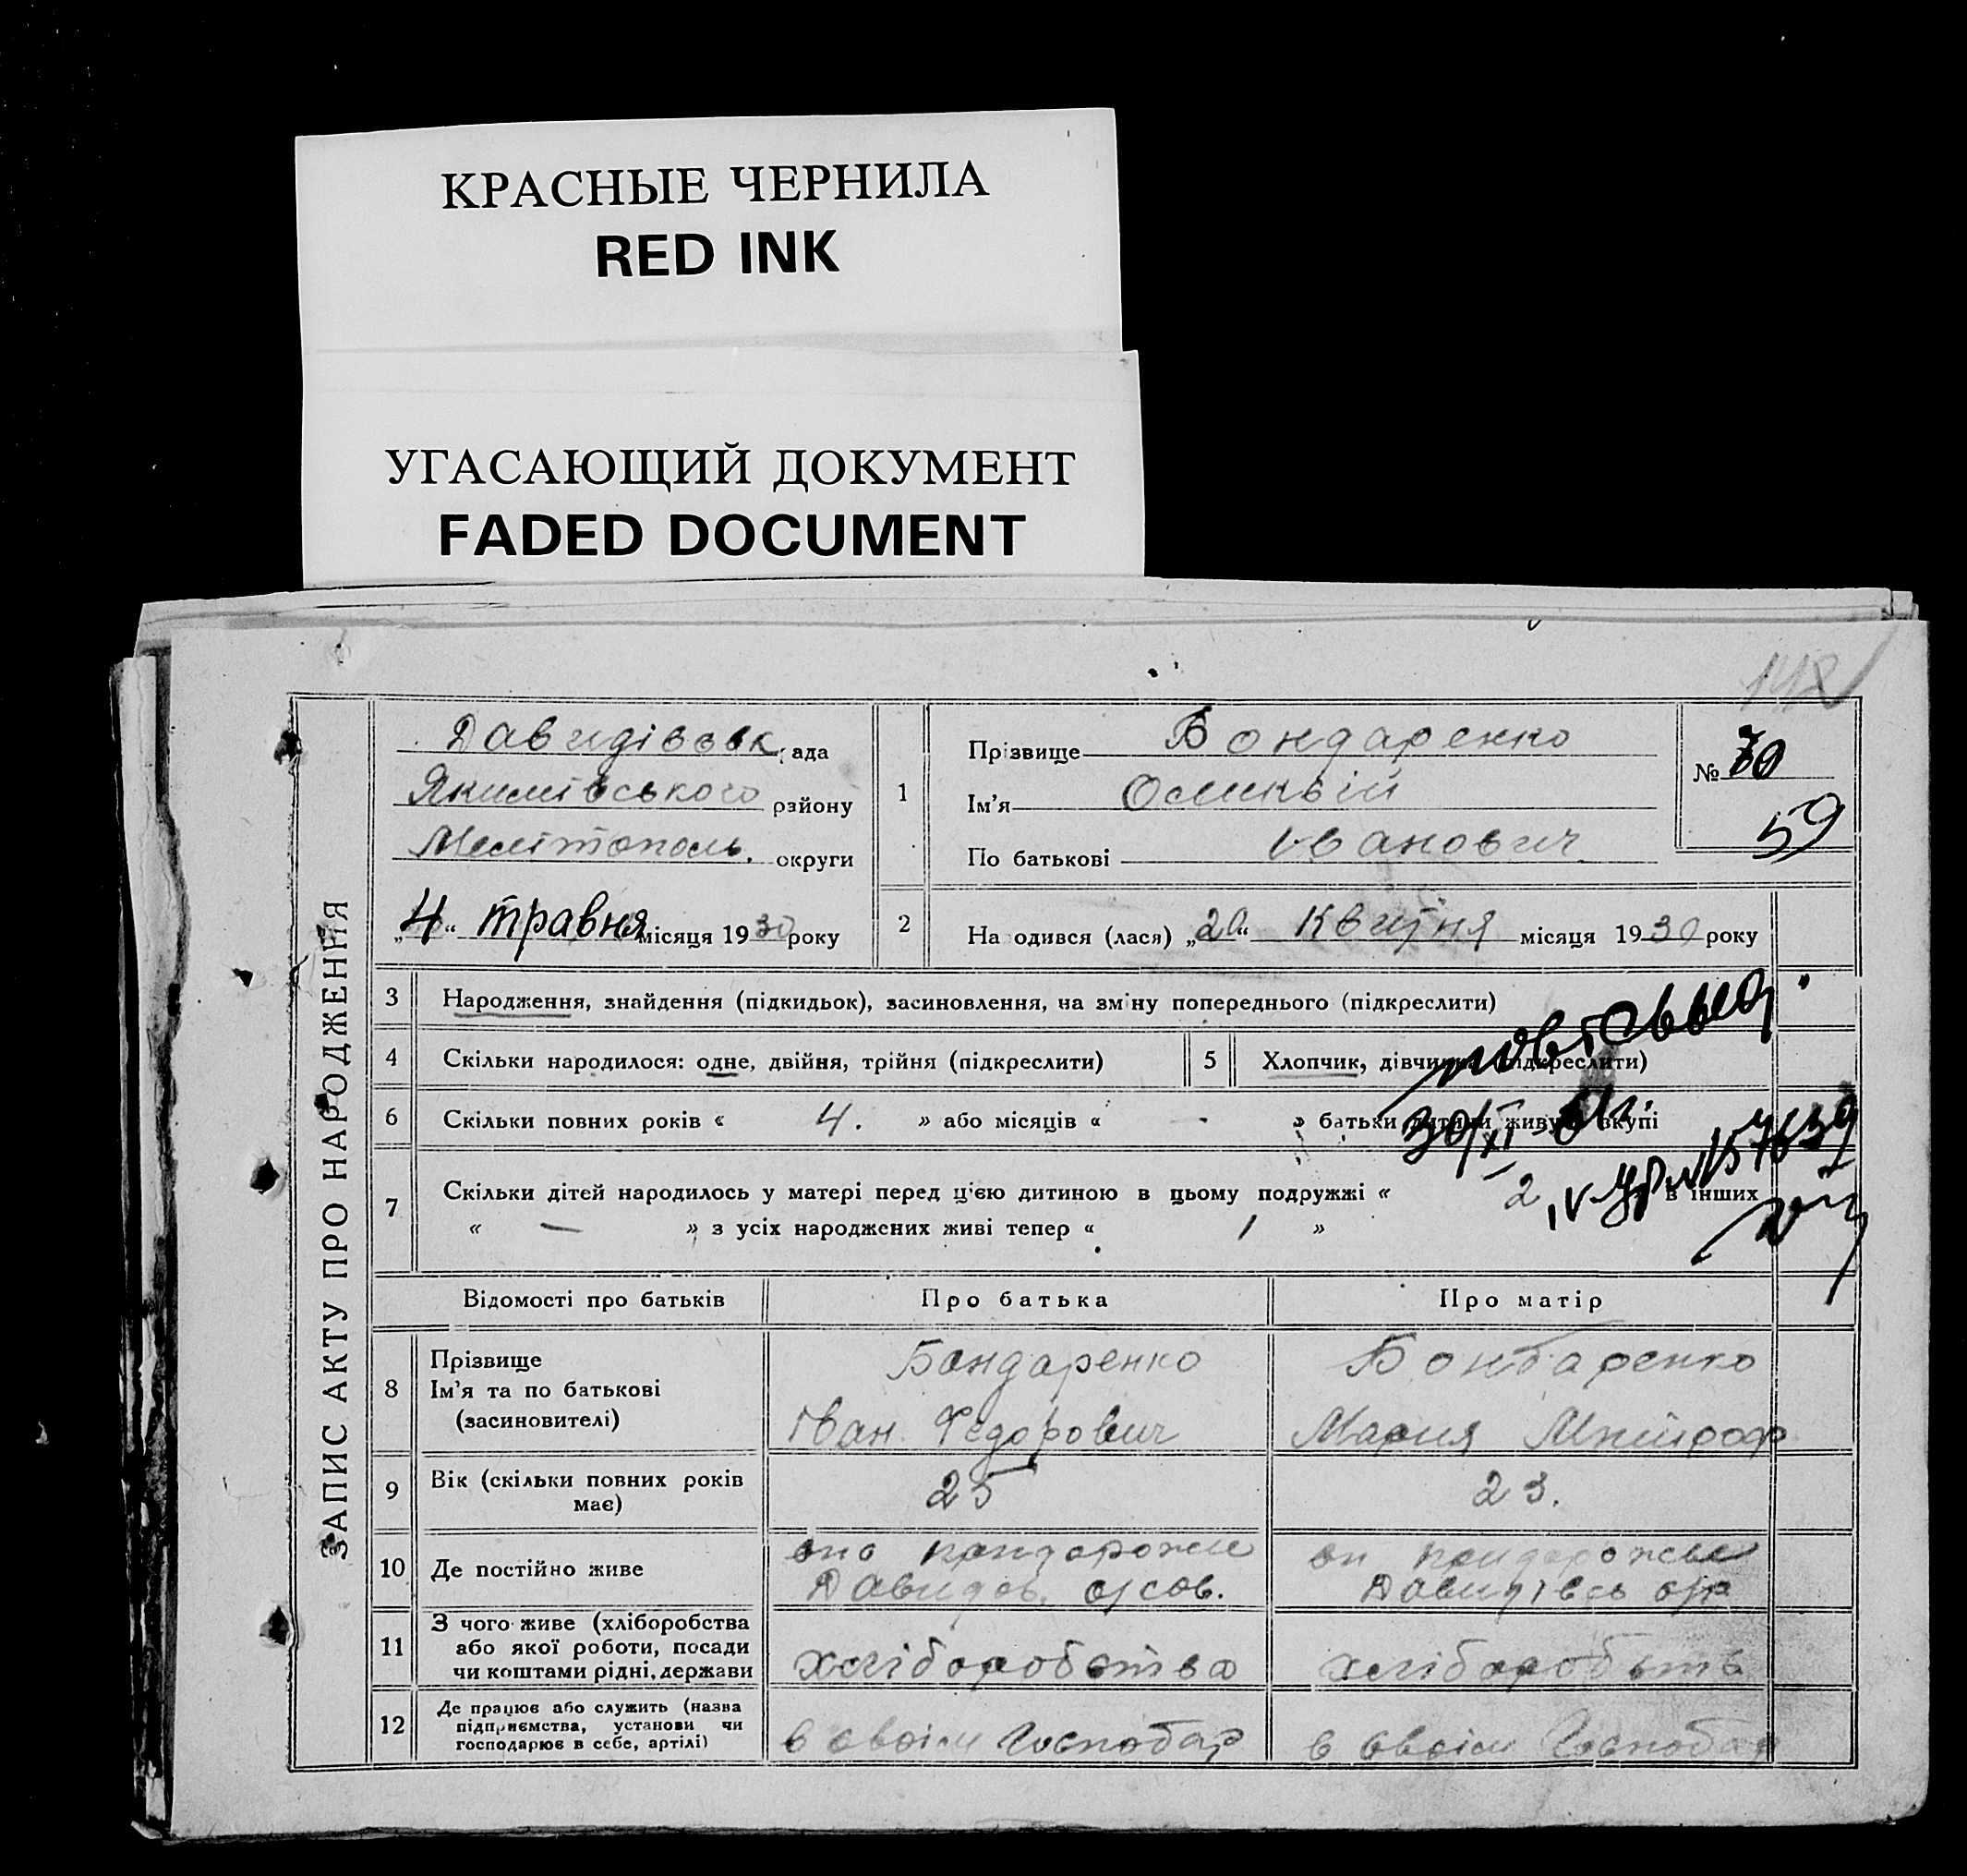 КРАСНЫЕ ЧЕРНИЛА
RED INK
УГАСАЮЩИЙ ДОКУМЕНТ
FADED DOCUMENT
ЗАПИС АКТУ ПРО НАРОДЖЕННЯ
Давидівськ. рада
Якимівського району
Мелітополь. округи
„4“ травня місяця 1930 року
1
Прізвище Бондаренко
Ім'я
По батькові Іванович
№ 70
59
2
Народився (лася) „20“ Квітня місяця 1930 року
3 Народження, знайдення (підкидьок), засиновлення, на зміну попереднього (підкреслити)
4 Скільки народилося: одне, двійня, трійня (підкреслити)
5 Хлопчик, дівчинка (підкреслити)
6 Скільки повних років « 4. » або місяців « - » батьки дитини живуть вкупі
7 Скільки дітей народилось у матері перед цією дитиною в цьому подружжі « 2 в інших
« — » з усіх народжених живі тепер « 1 »
Відомості про батьків
Про батька
Про матір
8 Прізвище
Ім'я та по батькові
(засиновителі)
Бондаренко
Іван Федорович
Бондаренко
Мария
9 Вік (скільки повних років
має)
25
23.
10 Де постійно живе
Давидов.
Давидівсь
11 З чого живе (хліборобства
або якої роботи, посади
чи коштами рідні, держави
хліборобства
хліборобств
12 Де працює або служить (назва
підприємства, установи чи
господарює в себе, артілі)
в своїм Господар
в своїм Господар